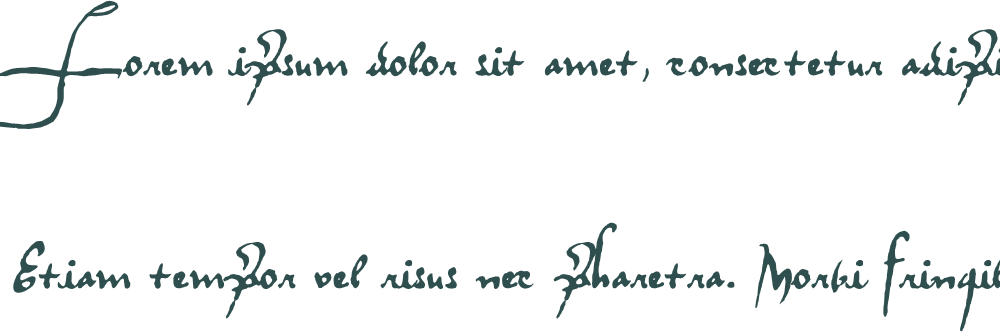 Lorem ipsum dolor sit amet, consectetur adipi
Etiam tempor vel risus nec pharetra. Morbi fringil